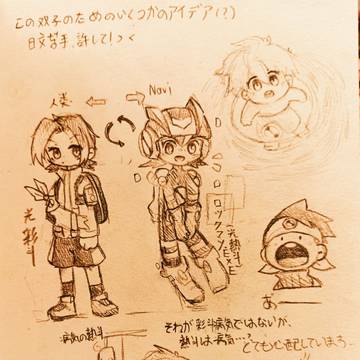 この双子のためのいくつかのアイデア(?)
日文苦手、許して!つく
人类
Navi
光彩斗
光熱斗
ロックマンEXE
あ——
病気の熱斗
それが彩斗病気ではないが、
熱斗は病気…?
とても心配しているよ。